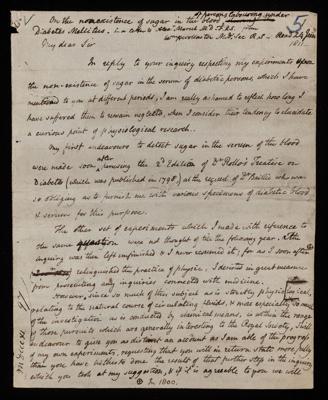 5
On the nonexistence of sugar in the blood of persons labouring under
Diabetes Mellitus. in a Letter to Alexr Marcet M.D. F.R.S. from
Wm Hyde Wollaston M.D. Sec. R.S. Read 24 Jan
1811.
My dear Sir
In reply to your inquiry respecting my experiments upon
the non-existence of sugar in the serum of diabetic persons, which I have
mentioned to you at different periods, I am really ashamed to reflect how long I
have suffered them to remain neglected, when I consider their tendency to elucidate
a curious point of physiological research.
My first endeavours to detect sugar in the serum of the blood
were made soon after perusing the 2d Edition of Dr Rollo's Treatise on
Diabetes (which was published in 1798), at the request of Dr Baillie who was
so obliging as to furnish me with various specimens of diabetic blood
& serum for this purpose.
The other set of experiments which I made with reference to
the same question were not thought of till the following year. The
inquiry was then left unfinished & I never resumed it; for as I soon after
relinquished the practice of physic, I desisted in great measure
from prosecuting any inquiries connected with medicine.
However, since so much of this subject as is strictly physiological,
relating to the natural course of circulating fluids, & more especially, so much
of the investigation as is conducted by chemical means, is within the range
of those pursuits which are generally interesting to the Royal Society, I shall
endeavour to give you as distinct an account as I am able of the progress
of my own experiments, requesting that you will in return state more fully
than you have hitherto done the result of that further step in the inquiry
which you took at my suggestion, & if it is agreeable to you we will
In 1800.